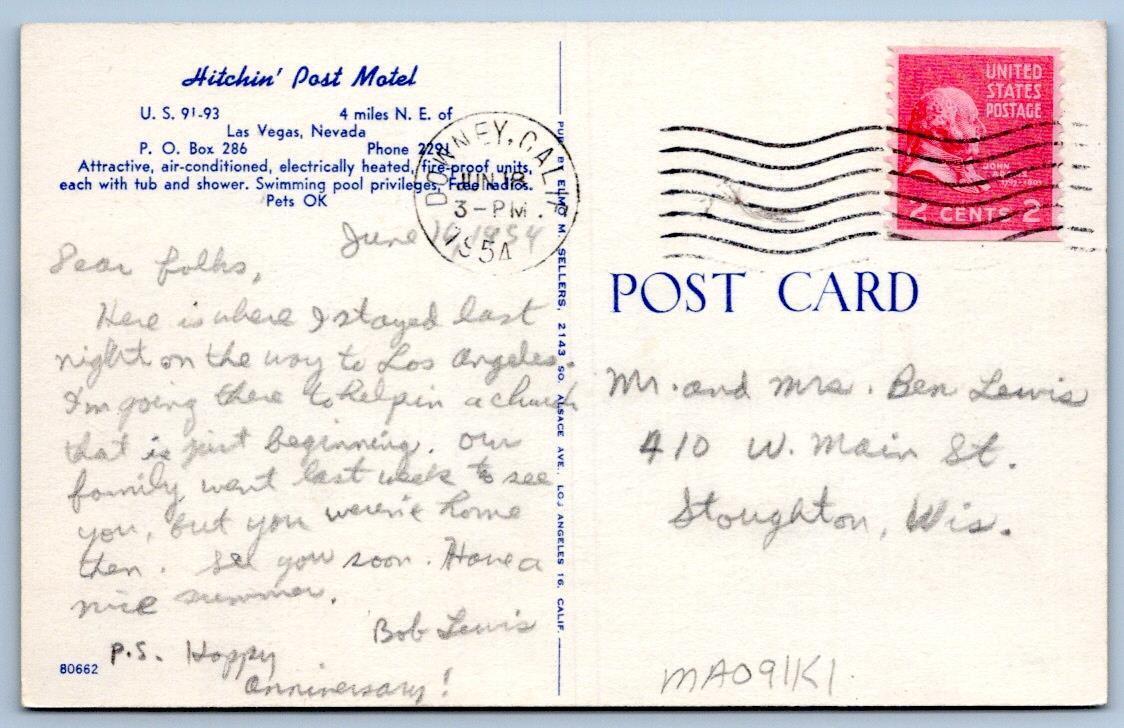 Hitchin' Post Motel
U. S. 91-93 4 miles N. E. of
Las Vegas, Nevada
P. O. Box 286 Phone 2291
Attractive, air-conditioned, electrically heated, fire-proof units,
each with tub and shower. Swimming pool privileges, Free radios.
Pets OK
DOWNEY, CALIF.
JUN 18
3-PM
1954
June 1954
Dear folks,
Here is where I stayed last
night on the way to Los Angeles.
I'm going there to help in a church
that is just beginning. Our
family went last week to see
you, but you weren't home
then. See you soon. Have a
nice summer.
Bob Lewis
P.S. Happy
anniversary!
80662
PUB. BY ELMO M. SELLERS, 2143 SO. ALSACE AVE., LOS ANGELES 16, CALIF.
UNITED
STATES
POSTAGE
JOHN
2 CENTS 2
POST CARD
Mr. and Mrs. Ben Lewis
410 W. Main St.
Stoughton, Wis.
MA091K1